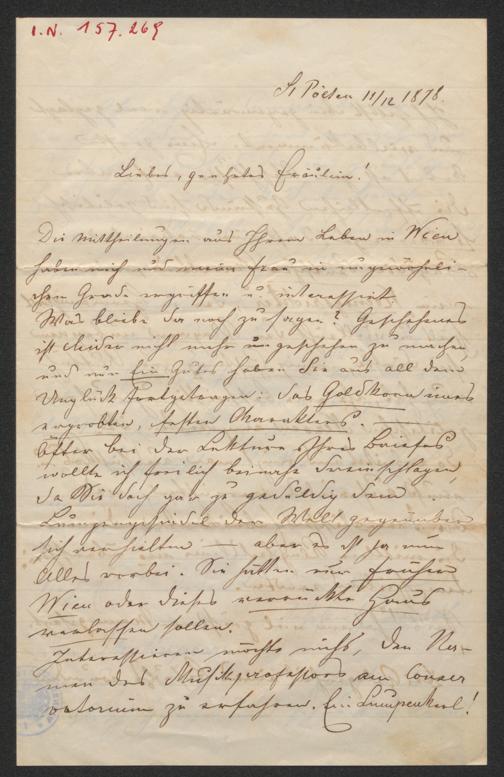 I.N. 157.269
St Pölten 11/12 1878.
Liebes, geehrtes Fräulein!
Die Mittheilungen aus Ihrem Leben in Wien
haben mich und meine Frau in ungewöhnli-
chen Grade ergriffen u interessirt.
Was bleibt da noch zu sagen? Geschehenes
ist leider nicht mehr ungeschehen zu machen,
und nun Ein Gutes haben Sie aus all dem
Unglück fortgetragen: das Goldkorn eines
erprobten, festen Charakters. —
Öfter bei der Lektüre Ihres Briefes
wollte ich freilich beinahe dreinschlagen,
da Sie doch gar zu geduldig dem
Lumpengesindel der Welt gegenüber
sich verhielten — aber es ist ja nun
Alles vorbei. Sie hätten nur früher
Wien oder dieses verrückte Haus
verlassen sollen.
Interessieren möchte mich, den Na-
men des Musikprofessors am Conser
vatorium zu erfahren. Ein Lumpenkerl!